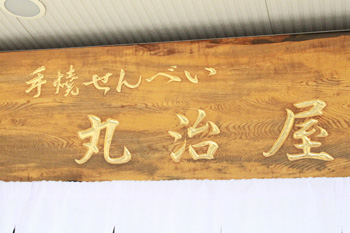 手焼せんべい
丸治屋